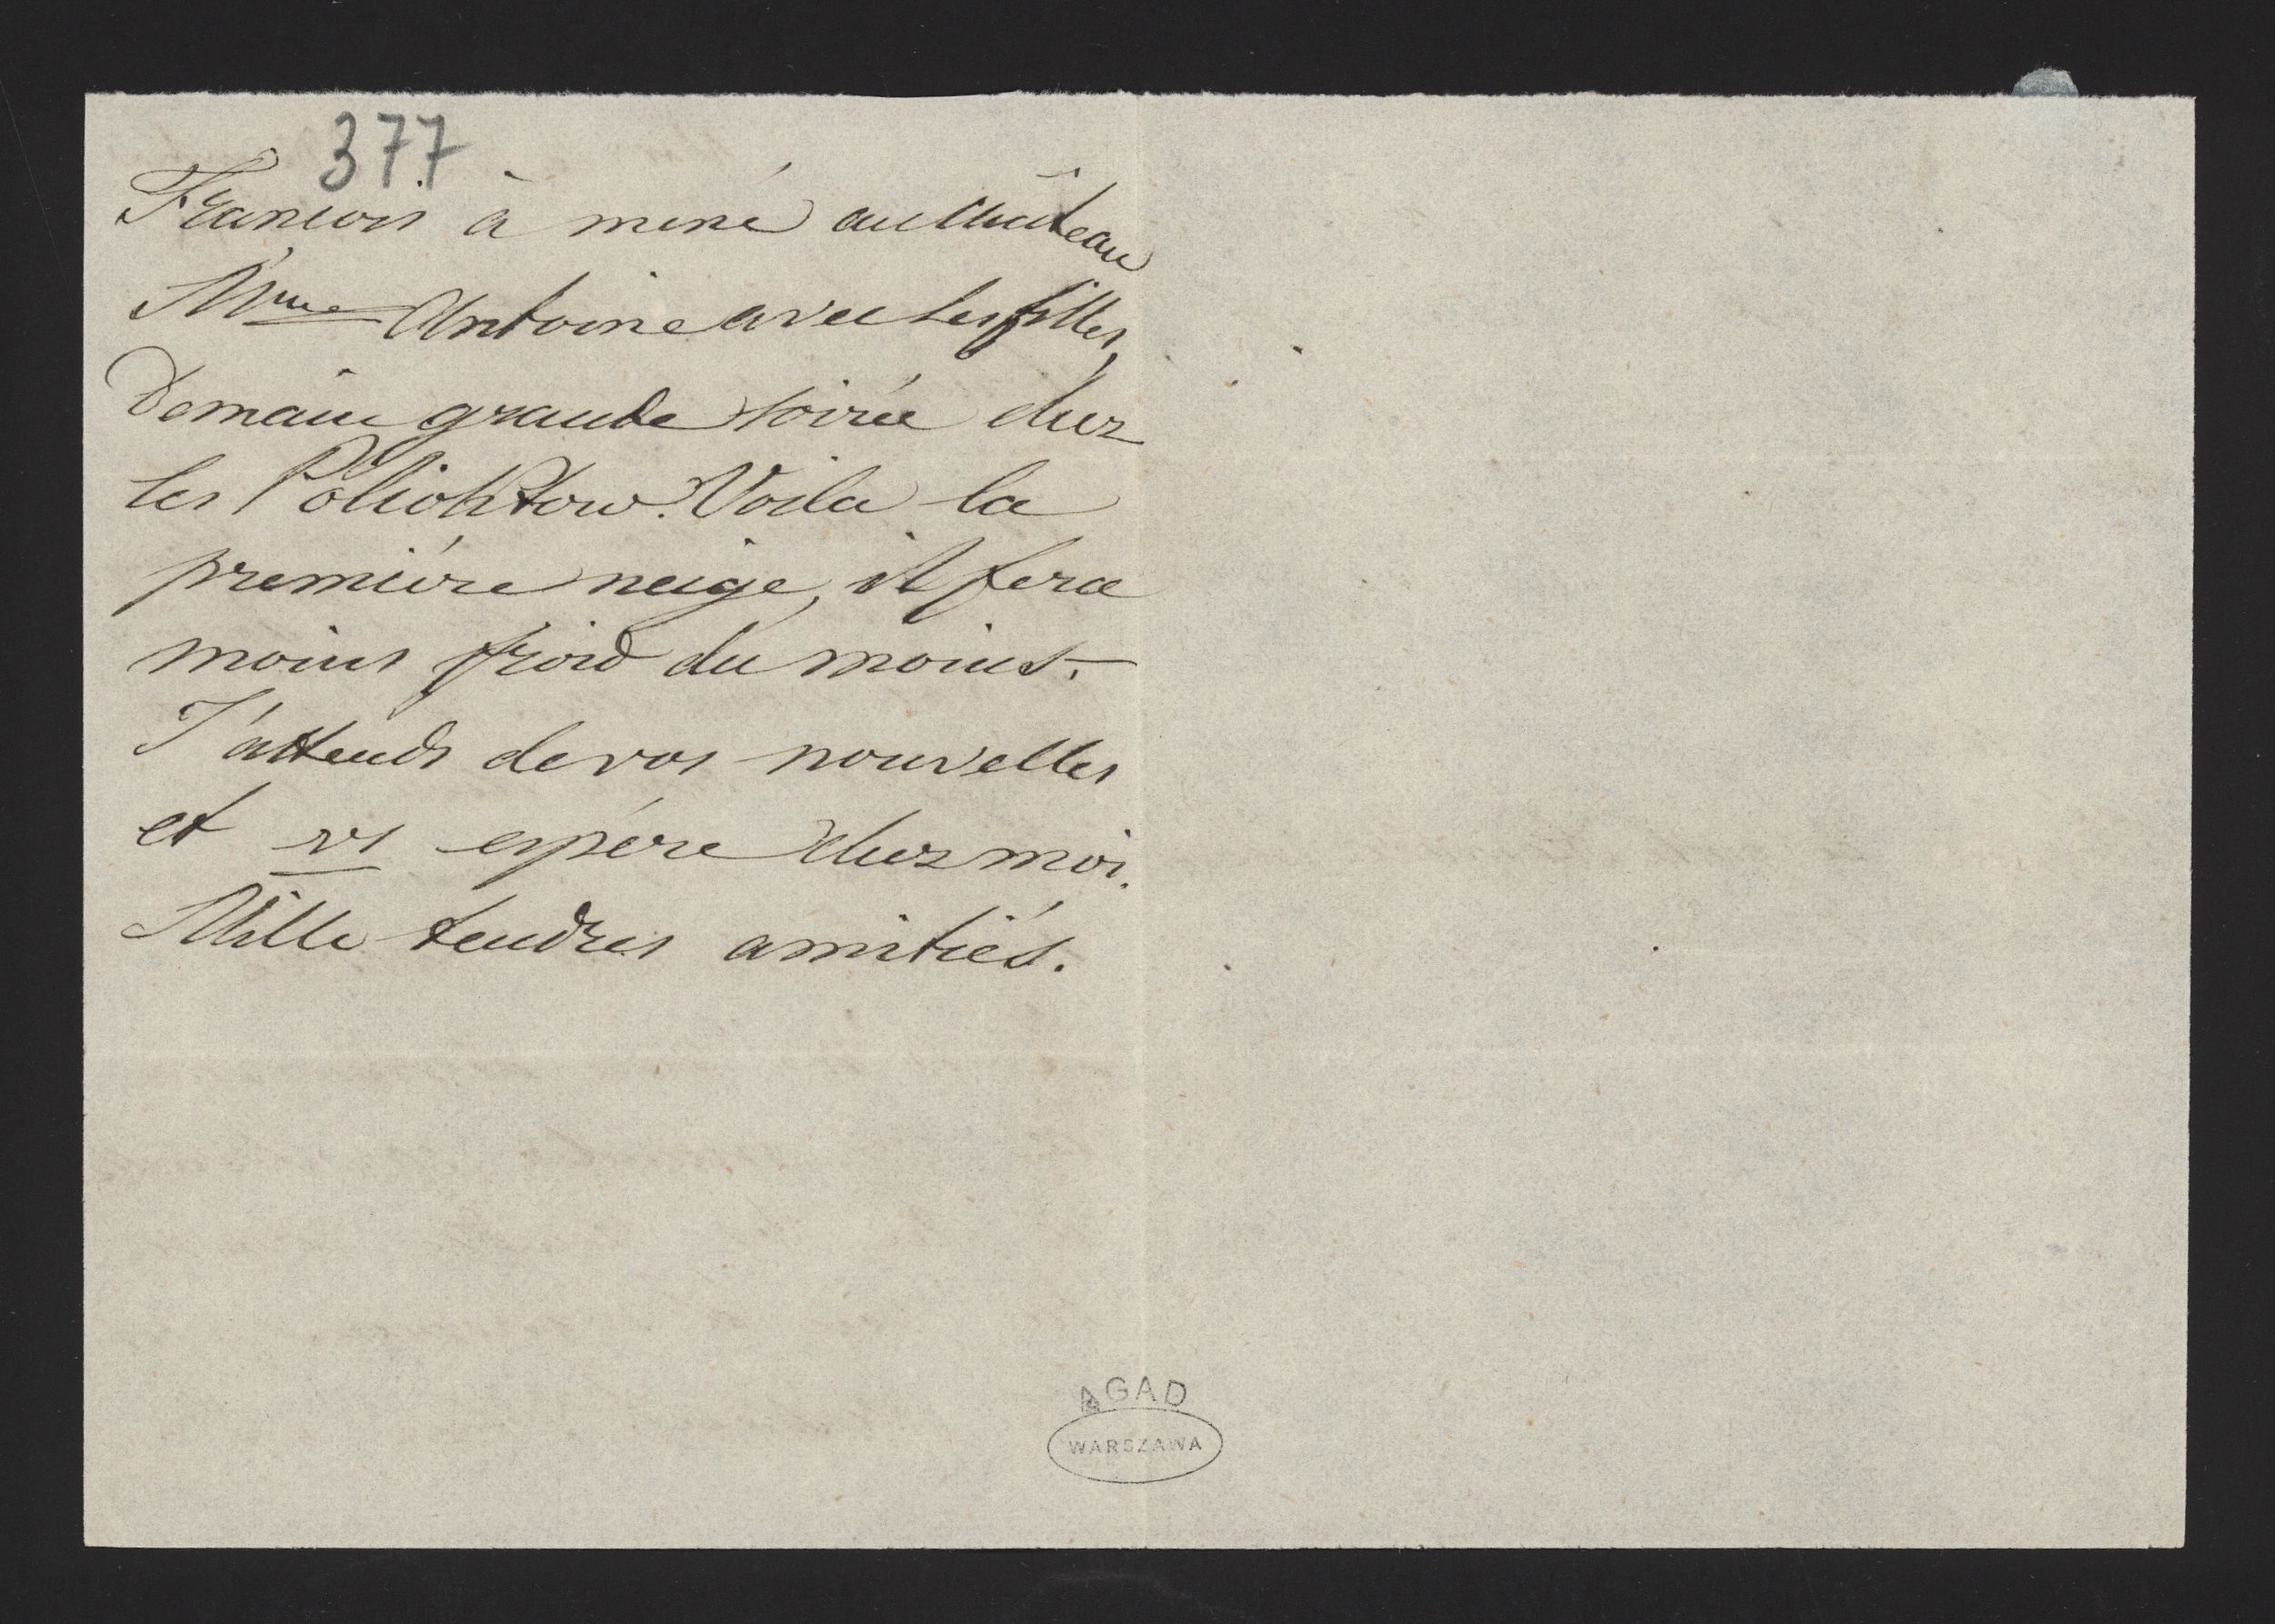 377
François à mené au château
Mme Antoine avec les filles,
Demain grande soirée chez
les Voilà la
première neige, il fera
moins froid du moins.
J'attends de vos nouvelles
et vs espère chez moi.
Mille tendres amitiés.
AGAD
WARSZAWA